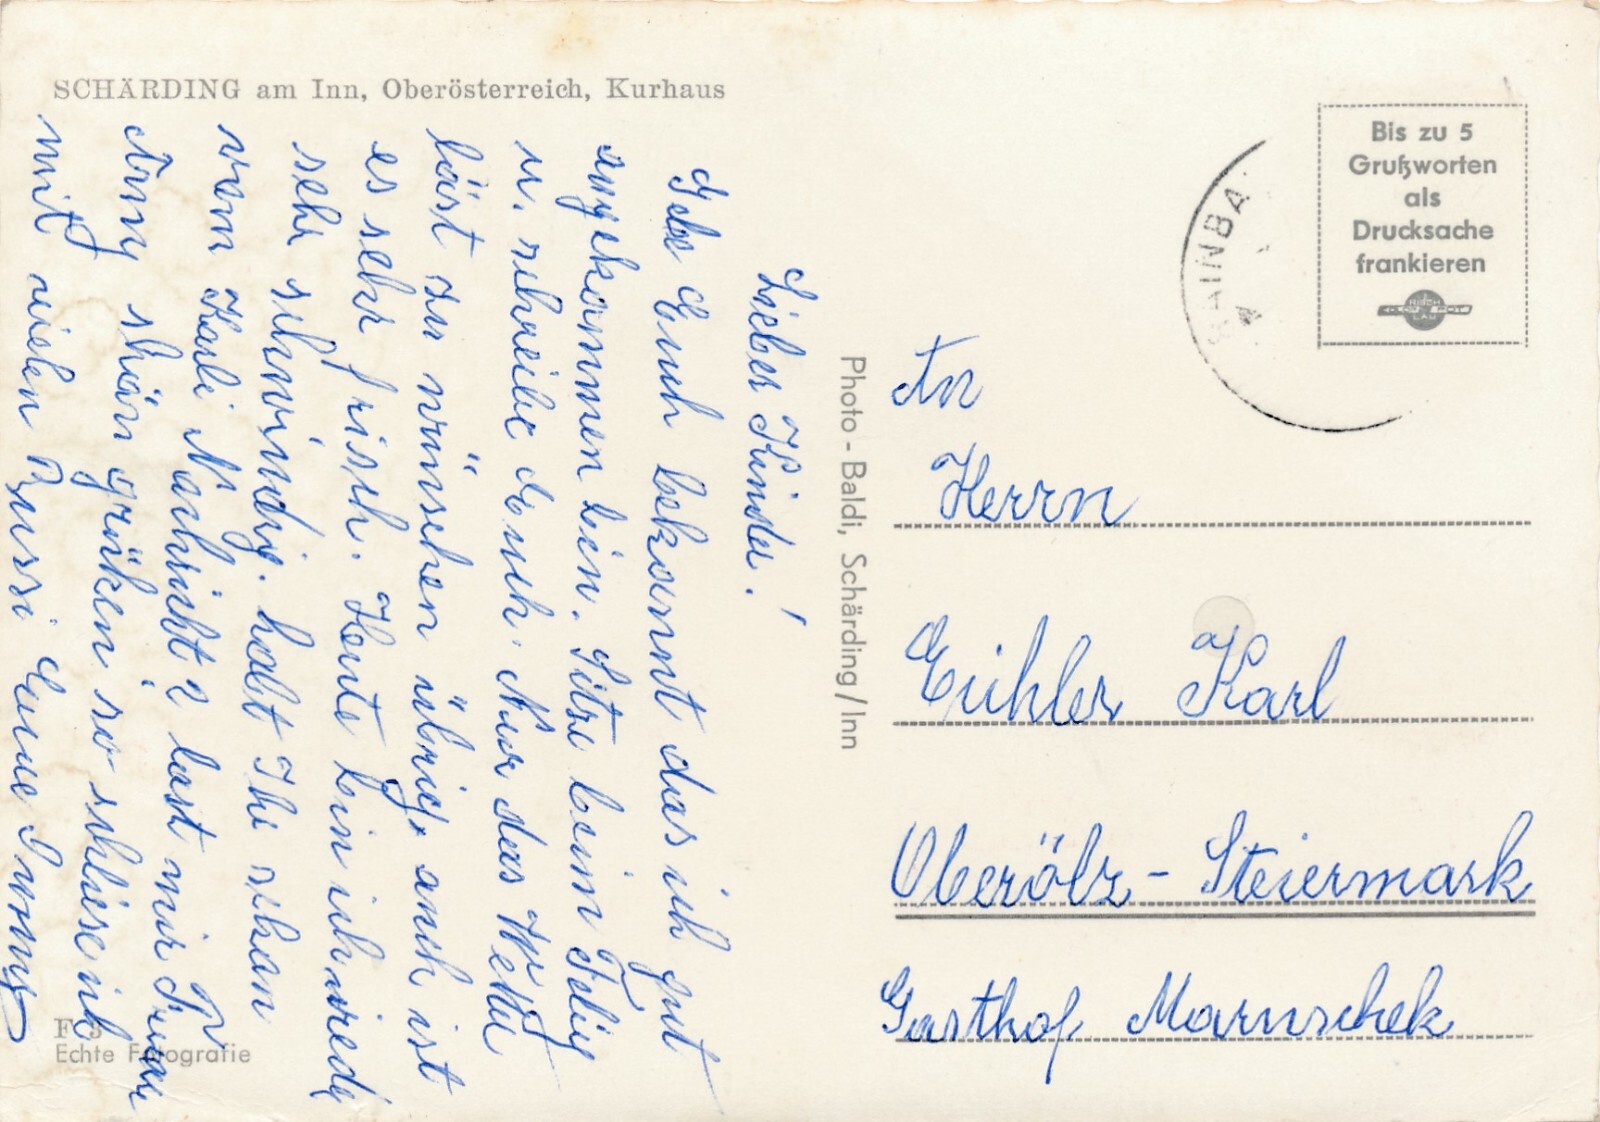 SCHÄRDING am Inn, Oberösterreich, Kurhaus
Lieber Kinder!
Gebe Euch bekannt das ich gut
angekommen bin. Sitze beim
u. schreibe auch. Nur das Wetter
läst zu wünschen übrig, auch ist
es sehr frisch. Heute bin ich wieder
sehr schwindig. habt Ihr schon
vom Karli Nachricht? last mir
schön grüßen, so schliese ich
mit vielen Bussi Eure
F 3
Echte Fotografie
Photo-Baldi, Schärding/Inn
Bis zu 5
Grußworten
als
Drucksache
frankieren
An
Herrn
Eichler Karl
Oberölz - Steiermark
Gasthof Marnschek